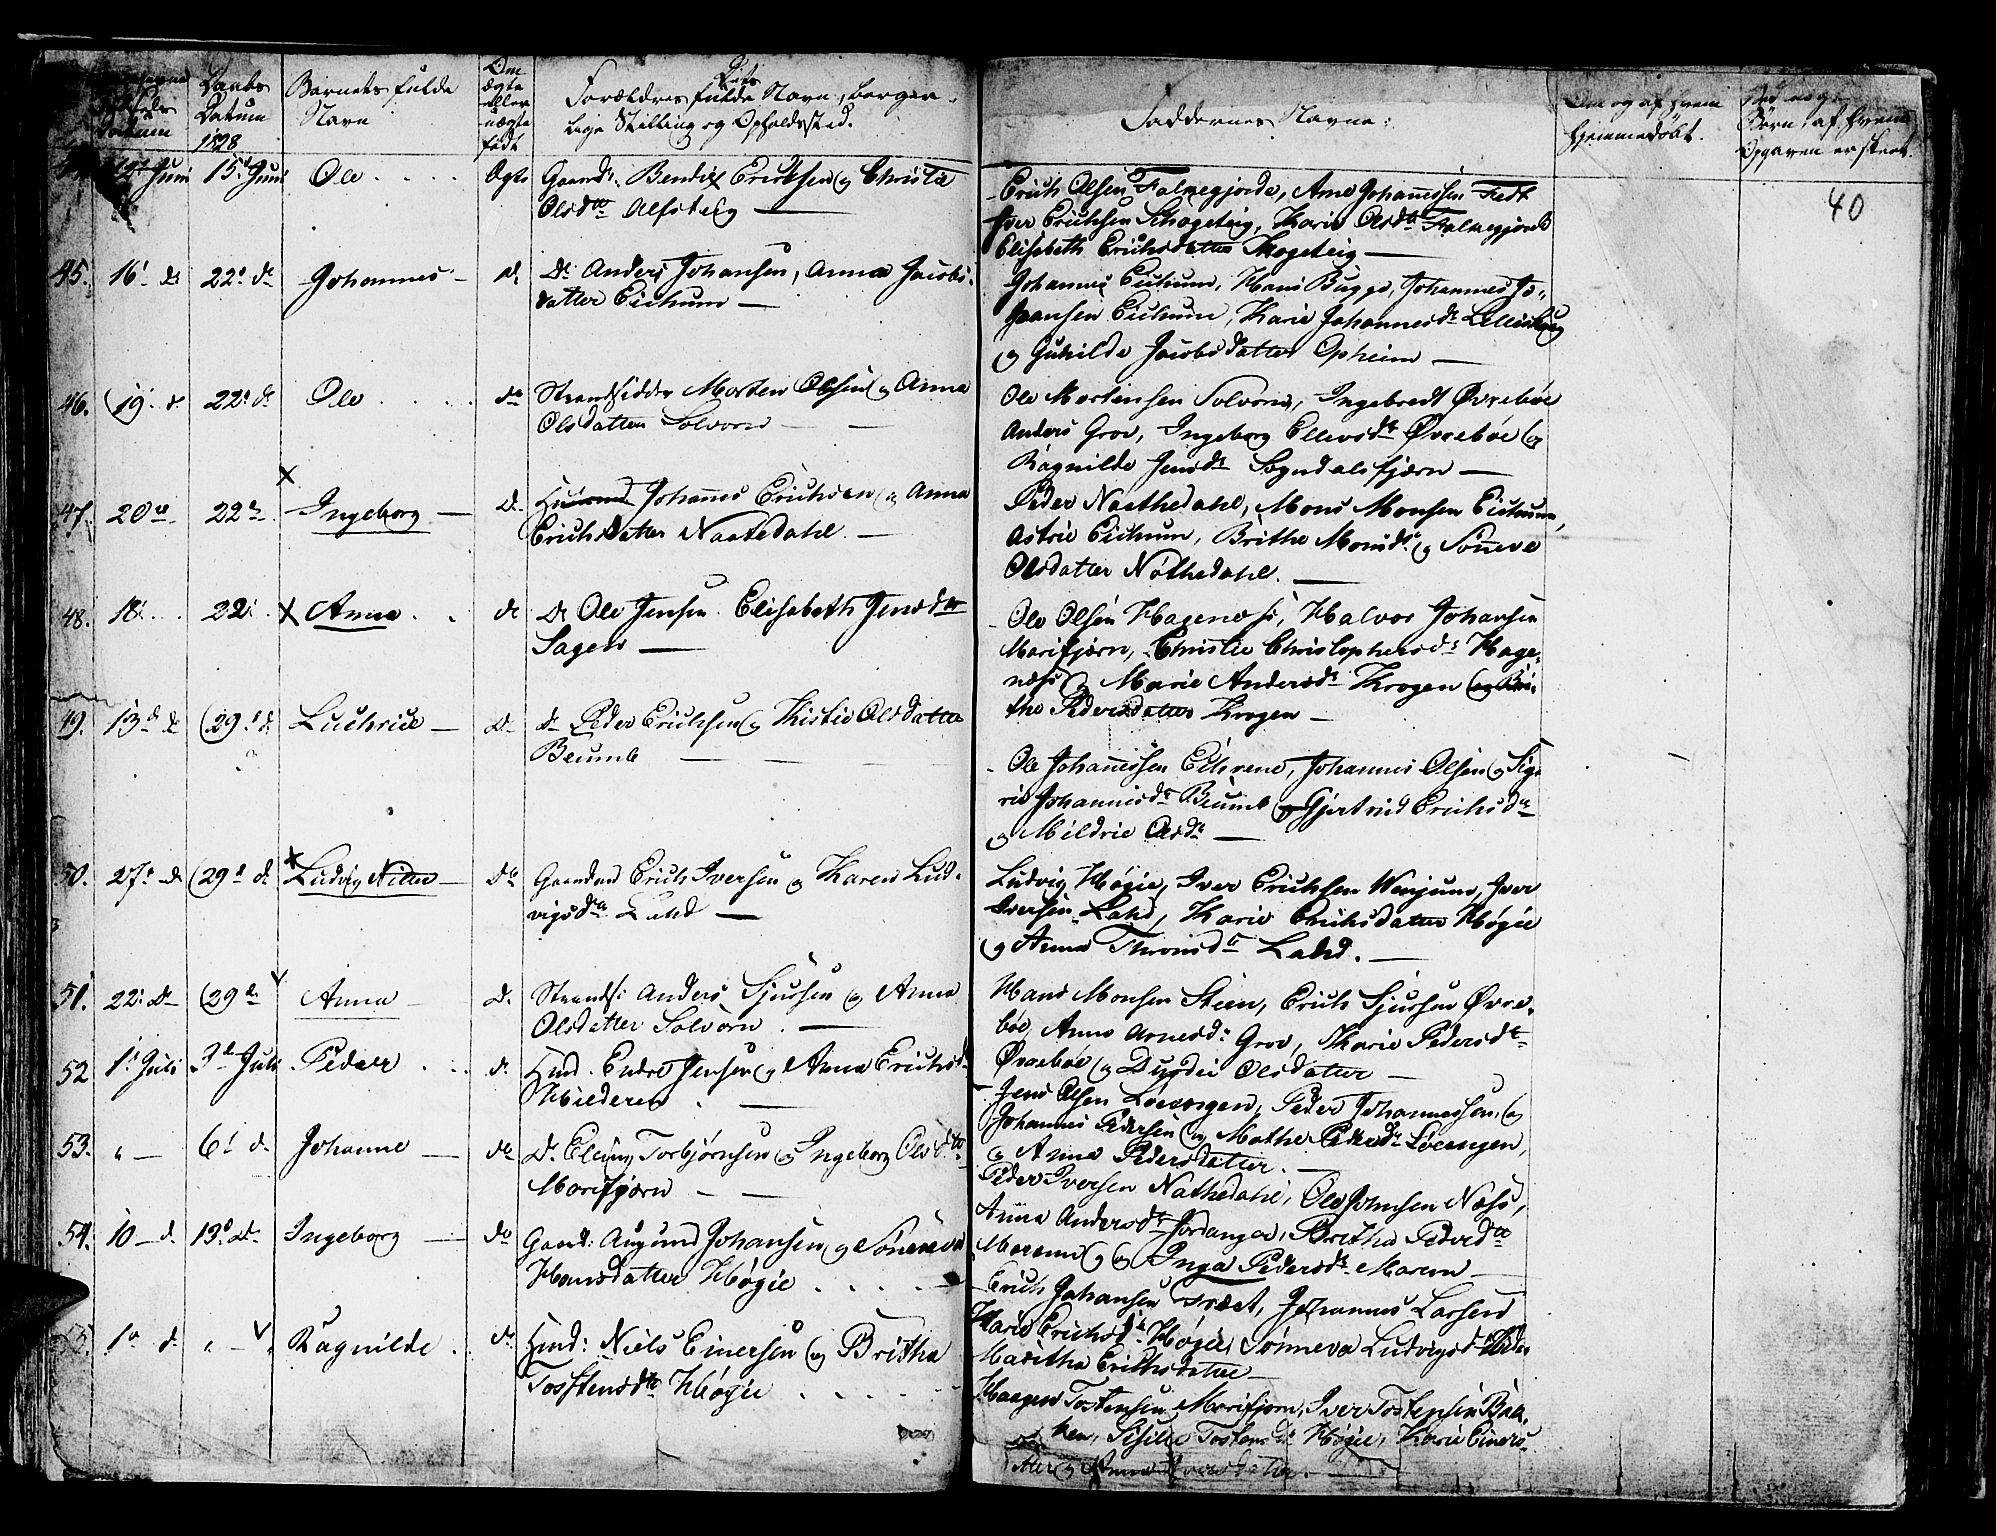 Daabs
Datum
1828
Barnets fulde
Navn
Om
ægte
eller
uægte
født
Forældres fulde Navn, borger-
lige Stilling og Opholdssted.
Faddernes Navne.
Om og af hvem
hjemmedøbt.
Opgaven er skeet.
40
12t Juni 15d Juni Ole Ægte Gaardm. Bendix Erichsen og Christie
Olsdtr Alfsteig
Erich Olsen Falnegjorde, Arne Johannessen Fedt
Iver Erichsen Skogeteig, Karie Olsdtr Falnegjorde
Elisabeth Erichsdatter Skogeteig
45. 16d do 22d do Johannes do Do Anders Johansen, Anna Jacobs-
datter Eichum
Johannes Eichum, Hans Bugge, Johannes Jo-
hansen Eichum, Karie Johannesdr
og Guhilde Jacobsdatter Opheim
46. 19. do 22d do Ole do Strandsidder Morten Olsen og Anna
Olsdatter Solvorn
Ole Mortensen Solvorn, Ingebredt Øvrebøe
Anders Grov, Ingeborg Ellevsdr Øvrebøe og
Ragnilde Jensdr Sogndalsfjærn
47. 20de 22d Ingeborg do Johannes Erichsen og Anna
Erichsdatter Naatedahl
Peder Naathedahl, Mons Monsen Eichum,
Astrie Eichum, Brithe Monsdr og Sønneve
Olsdatter Nøthedahl
48. 18. 22. Anna do Do Ole Jensen Elisabeth Jensdtr
Sagen
Ole Olsen Hagenæs, Halvor Johansen
Marifjærn, Christie Christophersdr Hage-
næs og Marie Andersdr Krogen og Bri-
the Pedersdatter Krogen
49. 13d do 29d do Luchrie do Do Peder Erichsen og Kistie Olsdatter
Beumb
Ole Johannessen Eikrene, Johannes Olsen og Sig-
rie Johannesdr Beumb og Gjertrud Erichsdr
og Mildrie Olsdr
50. 27d do 29d do Ludvig Nitter do Gaardmd Erich Iversen og Karen Lud-
vigsdtr Lahd
Ludvig Høgie, Iver Erichsen Wenjum, Iver
Iversen Lahd, Karie Erichsdatter Høgie
og Anna Thronsdr Lahd.
51. 22. do 29de Anna do Strands: Anders Sjursen og Anna
Olsdatter Solvorn
Hans Monsen Steen, Erich Sjursen Øvre-
bøe, Anna Arnesdr Grov, Karie Pedersdr
Øvrebøe og Durdei Olsdatter
52 1d Juli 3d Juli Peder do Hmd. Endre Jensen og Anna Erichsdr
Jens Olsen Løeengen, Peder Johannessen, og
Johannes Pedersen og Mathe Pedersdr Løeengen,
og Anna Pedersdatter.
53. " 6t do Johanne do Do Torbjørnsen og Ingeborg Olsdtr
Marifjærn
Peder Iversen Nathedahl, Ole Johnsen Næss,
Anna Andersdr Jordanger, Britha Pedersdtr
Marem og Inga Pedersdr Marem
54. 10 do 13d do Ingeborg do Gaard: Augund Johansen og Sønneva
Hansdatter Høgie
Erich Johansen Træet, Johannes Larsen
Karie Erichsdr Høgie, Sønneva Ludvigsdr
Maritha Erichsdatter
1d do " Ragnilde do Hmd: Niels Einersen og Britha
Tosstensdtr Høgie
Haagen Tostensen Marifjern, Iver Tostensen Bak-
ken, Sisille Tostensdr Høgie, Karie Einers-
datter og Anna Iversdatter.